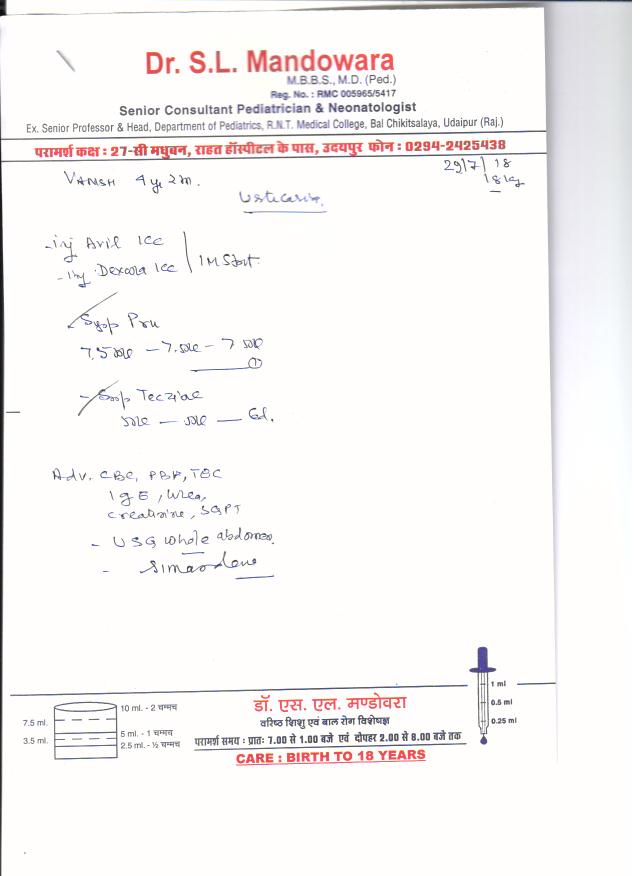 Dr. S.L. Mandowara
M.B.B.S., M.D. (Ped.)
Reg. No. : RMC 005965/5417
Senior Consultant Pediatrician & Neonatologist
Ex. Senior Professor & Head, Department of Pediatrics, R.N.T. Medical College, Bal Chikitsalaya, Udaipur (Raj.)
परामर्श कक्ष : 27-सी मधुबन, राहत हॉस्पीटल के पास, उदयपुर फोन : 0294-2425438
29/7/18
VANSH 4 yr 2m.
18 kg
- inj Avil 1cc
- inj Dexona 1cc
IM Stat.
Syp
7.5 ml - 7.5ml - 7
- Syp
Adv. CBC, PBF,
IgE, Urea,
creatinine, SGPT
- USG whole abdomen.
-
10 ml. - 2 चम्मच
7.5 ml.
5 ml - 1 चम्मच
3.5 ml.
2.5 ml - ½ चम्मच
डॉ. एस. एल. मण्डोवरा
वरिष्ठ शिशु एवं बाल रोग विशेषज्ञ
परामर्श समय : प्रातः 7.00 से 1.00 बजे एवं दोपहर 2.00 से 8.00 बजे तक
CARE : BIRTH TO 18 YEARS
1 ml
0.5 ml
0.25 ml